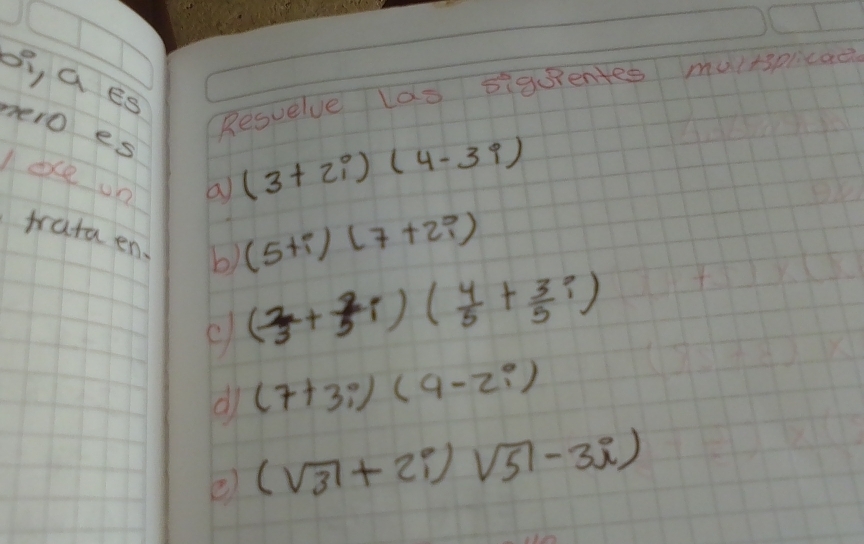 bi, a es
mero es
un
trata en-
Resuelve las siguientes multiplicacio
a) (3 + 2i) (4 - 3i)
b) (5+i) (7 + 2i)
c) (2/3 + 2/5 i) (4/5 + 3/5 i)
d) (7+3i) (9 - 2i)
e) (√3 + 2i) √5 - 3i)